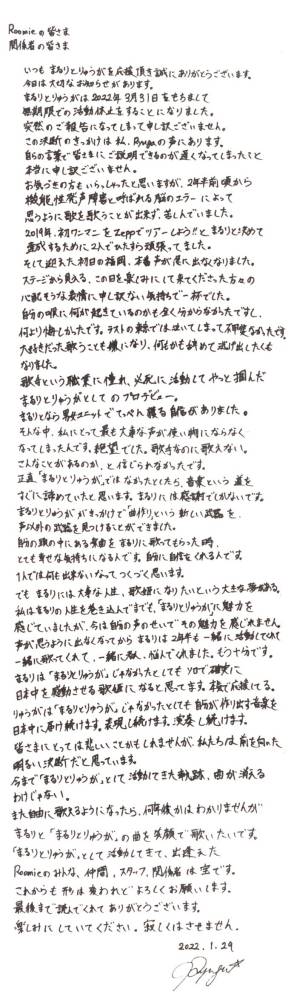 Roomieの皆さま
関係者の皆さま
いつも まるりとりゅうがを応援頂き誠にありがとうございます。
今日は大切なお知らせがあります。
まるりとりゅうがは2022年3月31日をもちまして
無期限での活動休止をすることになりました。
突然のご報告になってしまって申し訳ございません。
この決断のきっかけは私、Ryugaの声にあります。
自らの言葉で皆さまにご説明できるのが遅くなってしまったこと
本当に申し訳ございません。
お気づきの方もいらっしゃったと思いますが、2年半前頃から
機能性発声障害と呼ばれる脳のエラーによって
思うように歌を歌うことが出来ず、苦しんでいました。
2019年、初ワンマンをZeppでツアーしよう!!とまるりと決めて
達成するために2人でひたすら頑張ってました。
そして迎えた初日の福岡、本番声が尾に出なくなりました。
ステージから見える、この日を楽しみにして来てくださった方々の
心配そうな表情に申し訳ない気持ちで一杯でした。
自分の喉に何が起きているのかも全く分からなかったですし、
何より悔しかったです。ラストの森では泣いてしまって不甲斐なかったです。
大好きだった歌うことも嫌になり、何もかも諦めて逃げ出したくも
なりました。
歌手という職業に憧れ、必死に活動してやっと掴んだ
まるりとりゅうがとしてのプロデビュー。
まるりとなら男女ユニットでてっぺん獲る自信がありました。
そんな中、私にとって最も大事な声が使い物にならなく
なってしまったんです。絶望でした。歌手なのに歌えない。
こんなことがあるのか、と信じられなかったです。
正直「まるりとりゅうが」ではなかったとしたら、音楽という道を
すぐに諦めていたと思います。まるりには感謝でしかないです。
まるりとりゅうががきっかけで「曲作り」という新しい武器を、
声以外の武器を見つけることができました。
自分の頭の中にある楽曲をまるりに歌ってもらった時、
とても幸せな気持ちになるんです。自分に自信をくれる人です。
1人では何も出来ないなってつくづく思います。
でも まるりには大事な人生、歌姫になりたいという大きな夢がある。
私はまるりの人生を巻き込んでまでも、「まるりとりゅうが」に魅力を
感じていましたが、今は自分の声のせいでその魅力を感じれません。
声が思うように出なくなってからまるりは2年半も一緒に活動してくれて
一緒に歌ってくれて、一緒に悩んでくれました。もう十分です。
まるりは「まるりとりゅうが」じゃなかったとしてもソロで確実に
日本中を感動させる歌姫になると思ってます。本気で応援してる。
りゅうがは「まるりとりゅうが」じゃなかったとしても自分が作り出す音楽を
日本中に届け続けます。表現し続けます。演奏し続けます。
皆さまにとっては悲しいことかもしれませんが、私たちは前を向いた
明るい決断だと思っています。
今まで「まるりとりゅうが」として活動してきた軌跡、曲が消える
わけじゃない。
また自由に歌えるようになったら、何年後かはわかりませんが
まるりと「まるりとりゅうが」の曲を笑顔で歌いたいです。
「まるりとりゅうが」として活動してきて、出逢えた
Roomieのみんな、仲間、スタッフ、関係者は宝です。
これからも形は変われどよろしくお願いします。
最後まで読んでくれてありがとうございます。
楽しみにしていてください。寂しくはさせません。
2022.1.29
Ryuga